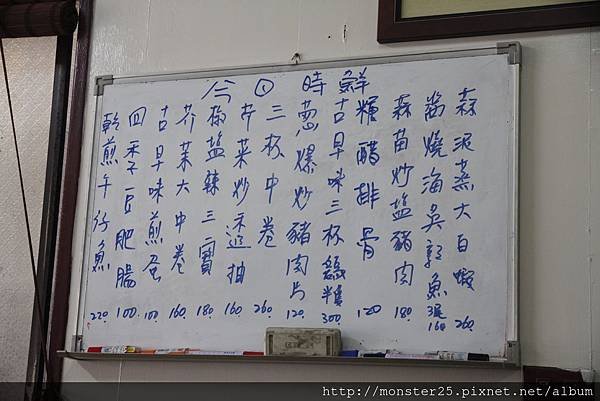 今日時鮮
蒜泥蒸大白蝦 260
醬燒海吳郭魚 3尾 160
蒜苗炒鹽豬肉 180
糖醋排骨 120
古早味三杯 300
蔥爆炒豬肉片 120
三杯中卷 260
芹菜炒透抽 160
椒鹽辣三寶 180
芥菜大中卷 160
古早味煎蛋 100
四季豆肥腸 100
乾煎午仔魚 220
http://monster25.pixnet.net/album